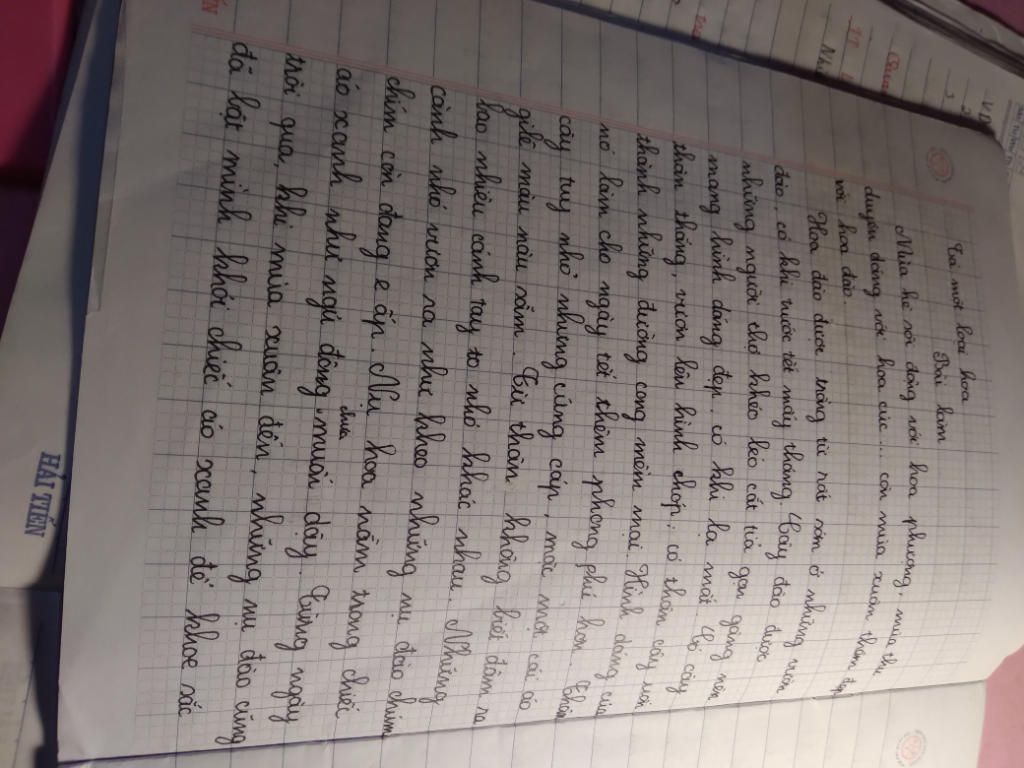 Tả một loài hoa
Bài làm
Mùa hè sôi động với hoa phượng, mùa thu
duyên dáng với hoa cúc... còn mùa xuân thắm đẹp
với hoa đào.
Hoa đào được trồng từ rất sớm ở những vườn
đào, có khi trước tết mấy tháng. Cây đào được
những người thợ khéo léo cắt tỉa gọn gàng nên
mang hình dáng đẹp, có khi lạ mắt. Có cây
thân thẳng, vươn lên hình chóp; có thân cây uốn
thành những đường cong mềm mại. Hình dáng của
nó làm cho ngày tết thêm phong phú hơn. Thân
cây tuy nhỏ nhưng cứng cáp, mặc một cái áo
gilê màu nâu sẫm. Từ thân không biết đâm ra
bao nhiêu cánh tay to nhỏ khác nhau. Những
cành nhỏ vươn ra như khoe những nụ đào chúm
chím còn đang e ấp. Nụ hoa nằm trong chiếc
áo xanh như ngủ đông chưa muốn dậy. Từng ngày
trôi qua, khi mùa xuân đến, những nụ đào cũng
đã bật mình khỏi chiếc áo xanh để khoe sắc
HẢI TIẾN